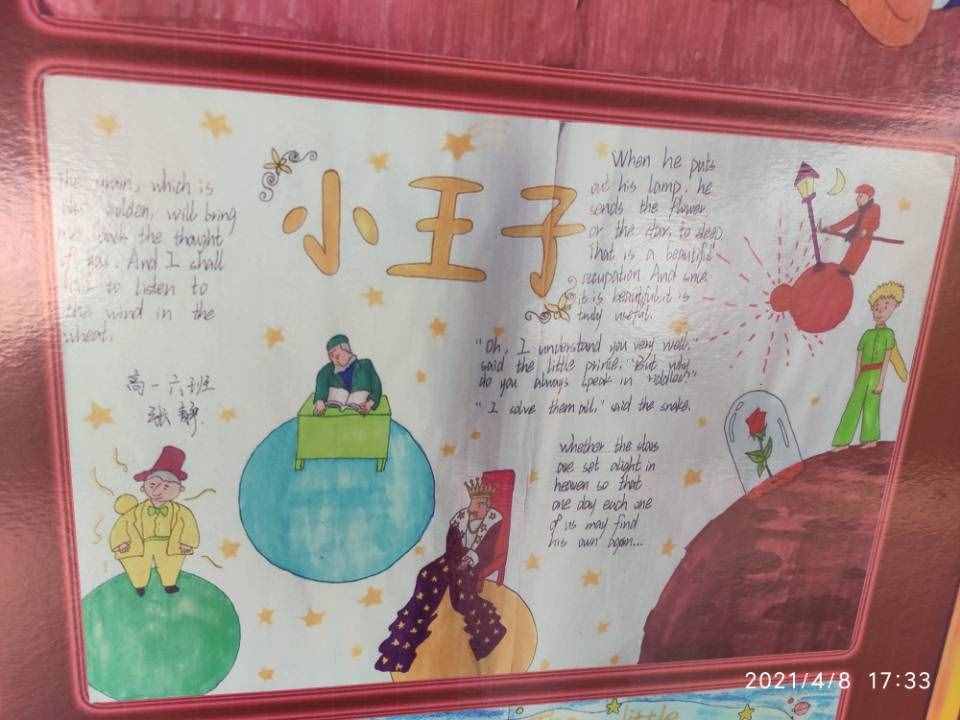 小王子
the grain, which is
also golden, will bring
me back the thought
of you. And I shall
love to listen to
the wind in the
wheat.
高一六班
张静
When he puts
out his lamp, he
sends the flower
or the star, to sleep
That is a beautiful
occupation And since
it is beautiful, it is
truly useful.
"Oh, I understand you very well,
said the little prince. "But why
do you always speak in riddles?"
"I solve them all," said the snake.
Whether the stars
are set alight in
heaven so that
one day each one
of us may find
his own again...
little
2021/4/8 17:33